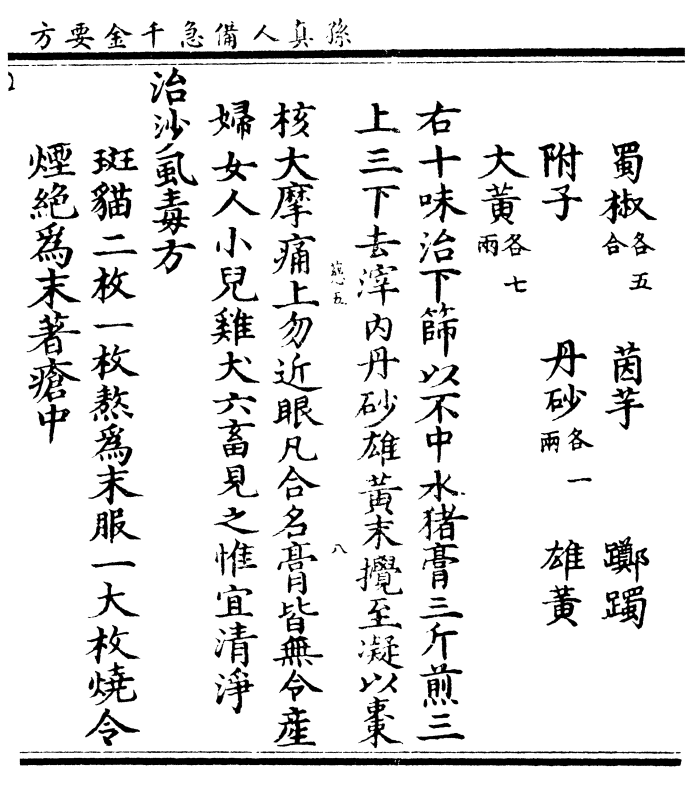 孫真人備急千金要方
蜀椒各五合 茵芋 躑躅
附子 丹砂各一兩 雄黃
大黃各七兩
右十味治下篩以不中水猪膏三斤煎三
上三下去滓内丹砂雄黃末攪至凝以棗
核大摩痛上勿近眼凡合名膏皆無令産
婦女人小兒雞犬六畜見之惟宜清淨
治沙虱毒方
斑貓二枚一枚熬爲末服一大枚燒令
煙絶爲末著瘡中
五
八